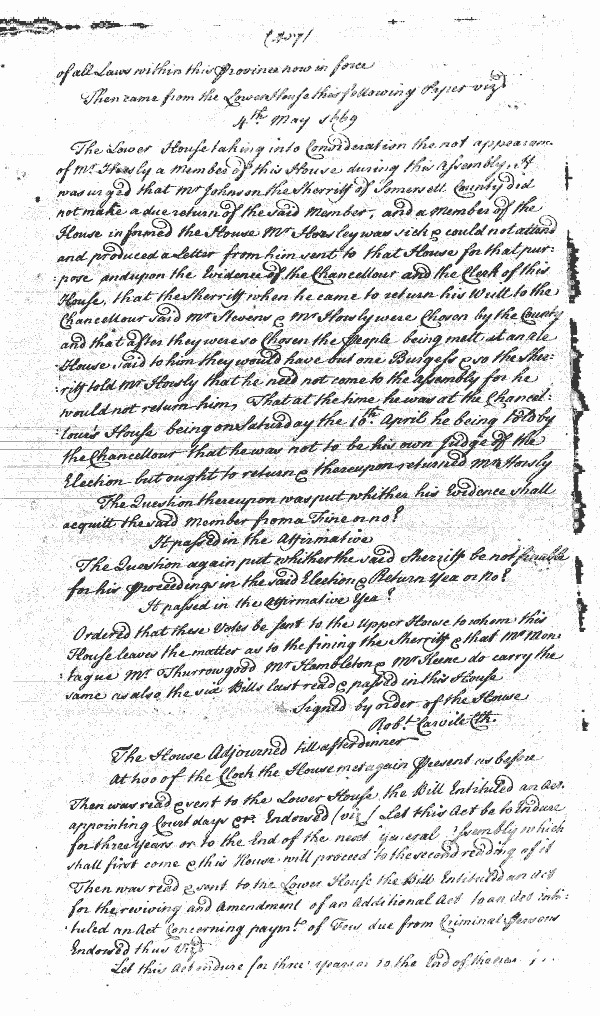 of all Laws within this Province now in force
Then came from the Lower House this following Paper viz
4th May 1669
The Lower House taking into Consideration the not appearance
of Mr Horsly a Member of this House during this Assembly, It
was urged that Mr Johnson the Sherriff of Somersett County did
not make a due return of the said Member, and a Member of the
House informed the House Mr Horsley was sick & could not attend
and produced a Letter from him sent to that House for that pur=
=pose and upon the Evidence of the Chancellour and the Clerk of this
House, that the Sherriff when he came to return his Writt to the
Chancellour said Mr Stevens & Mr Horsly were Chosen by the County
and that after they were so Chosen the People being mett at an Ale
House said to him they would have but one Burgess & so the Sher=
=riff told Mr Horsly that he need not come to the Assembly for he
would not return him, That at the time he was at the Chancel=
lours House being on Saturday the 10th April he being told by
the Chancellour that he was not to be his own Judge of the
Election but ought to return & thereupon returned Mr Horsly
The Question thereupon was put whether his Evidence shall
acquitt the said Member from a Fine or no?
It passed in the Affirmative
The Question again put whither the said Sherriff be not fineable
for his proceedings in the said Election & Return Yea or No?
It passed in the Affirmative Yea?
Ordered that these Votes be sent to the Upper House to whom this
House leaves the matter as to the fining the Sherriff & that Mr Mon
=tague Mr Thurrowgood Mr Hambleton & Mr Keene do carry the
same as also the six Bills last read & passed in this House
Signed by order of the House
Robt Carvile Clk.
The House Adjourned till after dinner
At two of the Clock the House met again Present as before
Then was read & sent to the Lower House, the Bill Entituled an Act.
appointing Court days &c. Endorsed (viz) Let this Act be to Endure
for three years or to the End of the next General Assembly which
shall first come & this House will proceed to the second reading of it
Then was read & sent to the Lower House the Bill Entituled an Act
for the reviving and Amendment of an Additional Act to an Act Inti=
=tuled an Act Concerning paymt of Fees due from Criminal Persons
Endorsed thus viz
Let this Act endure for three years or to the End of the next